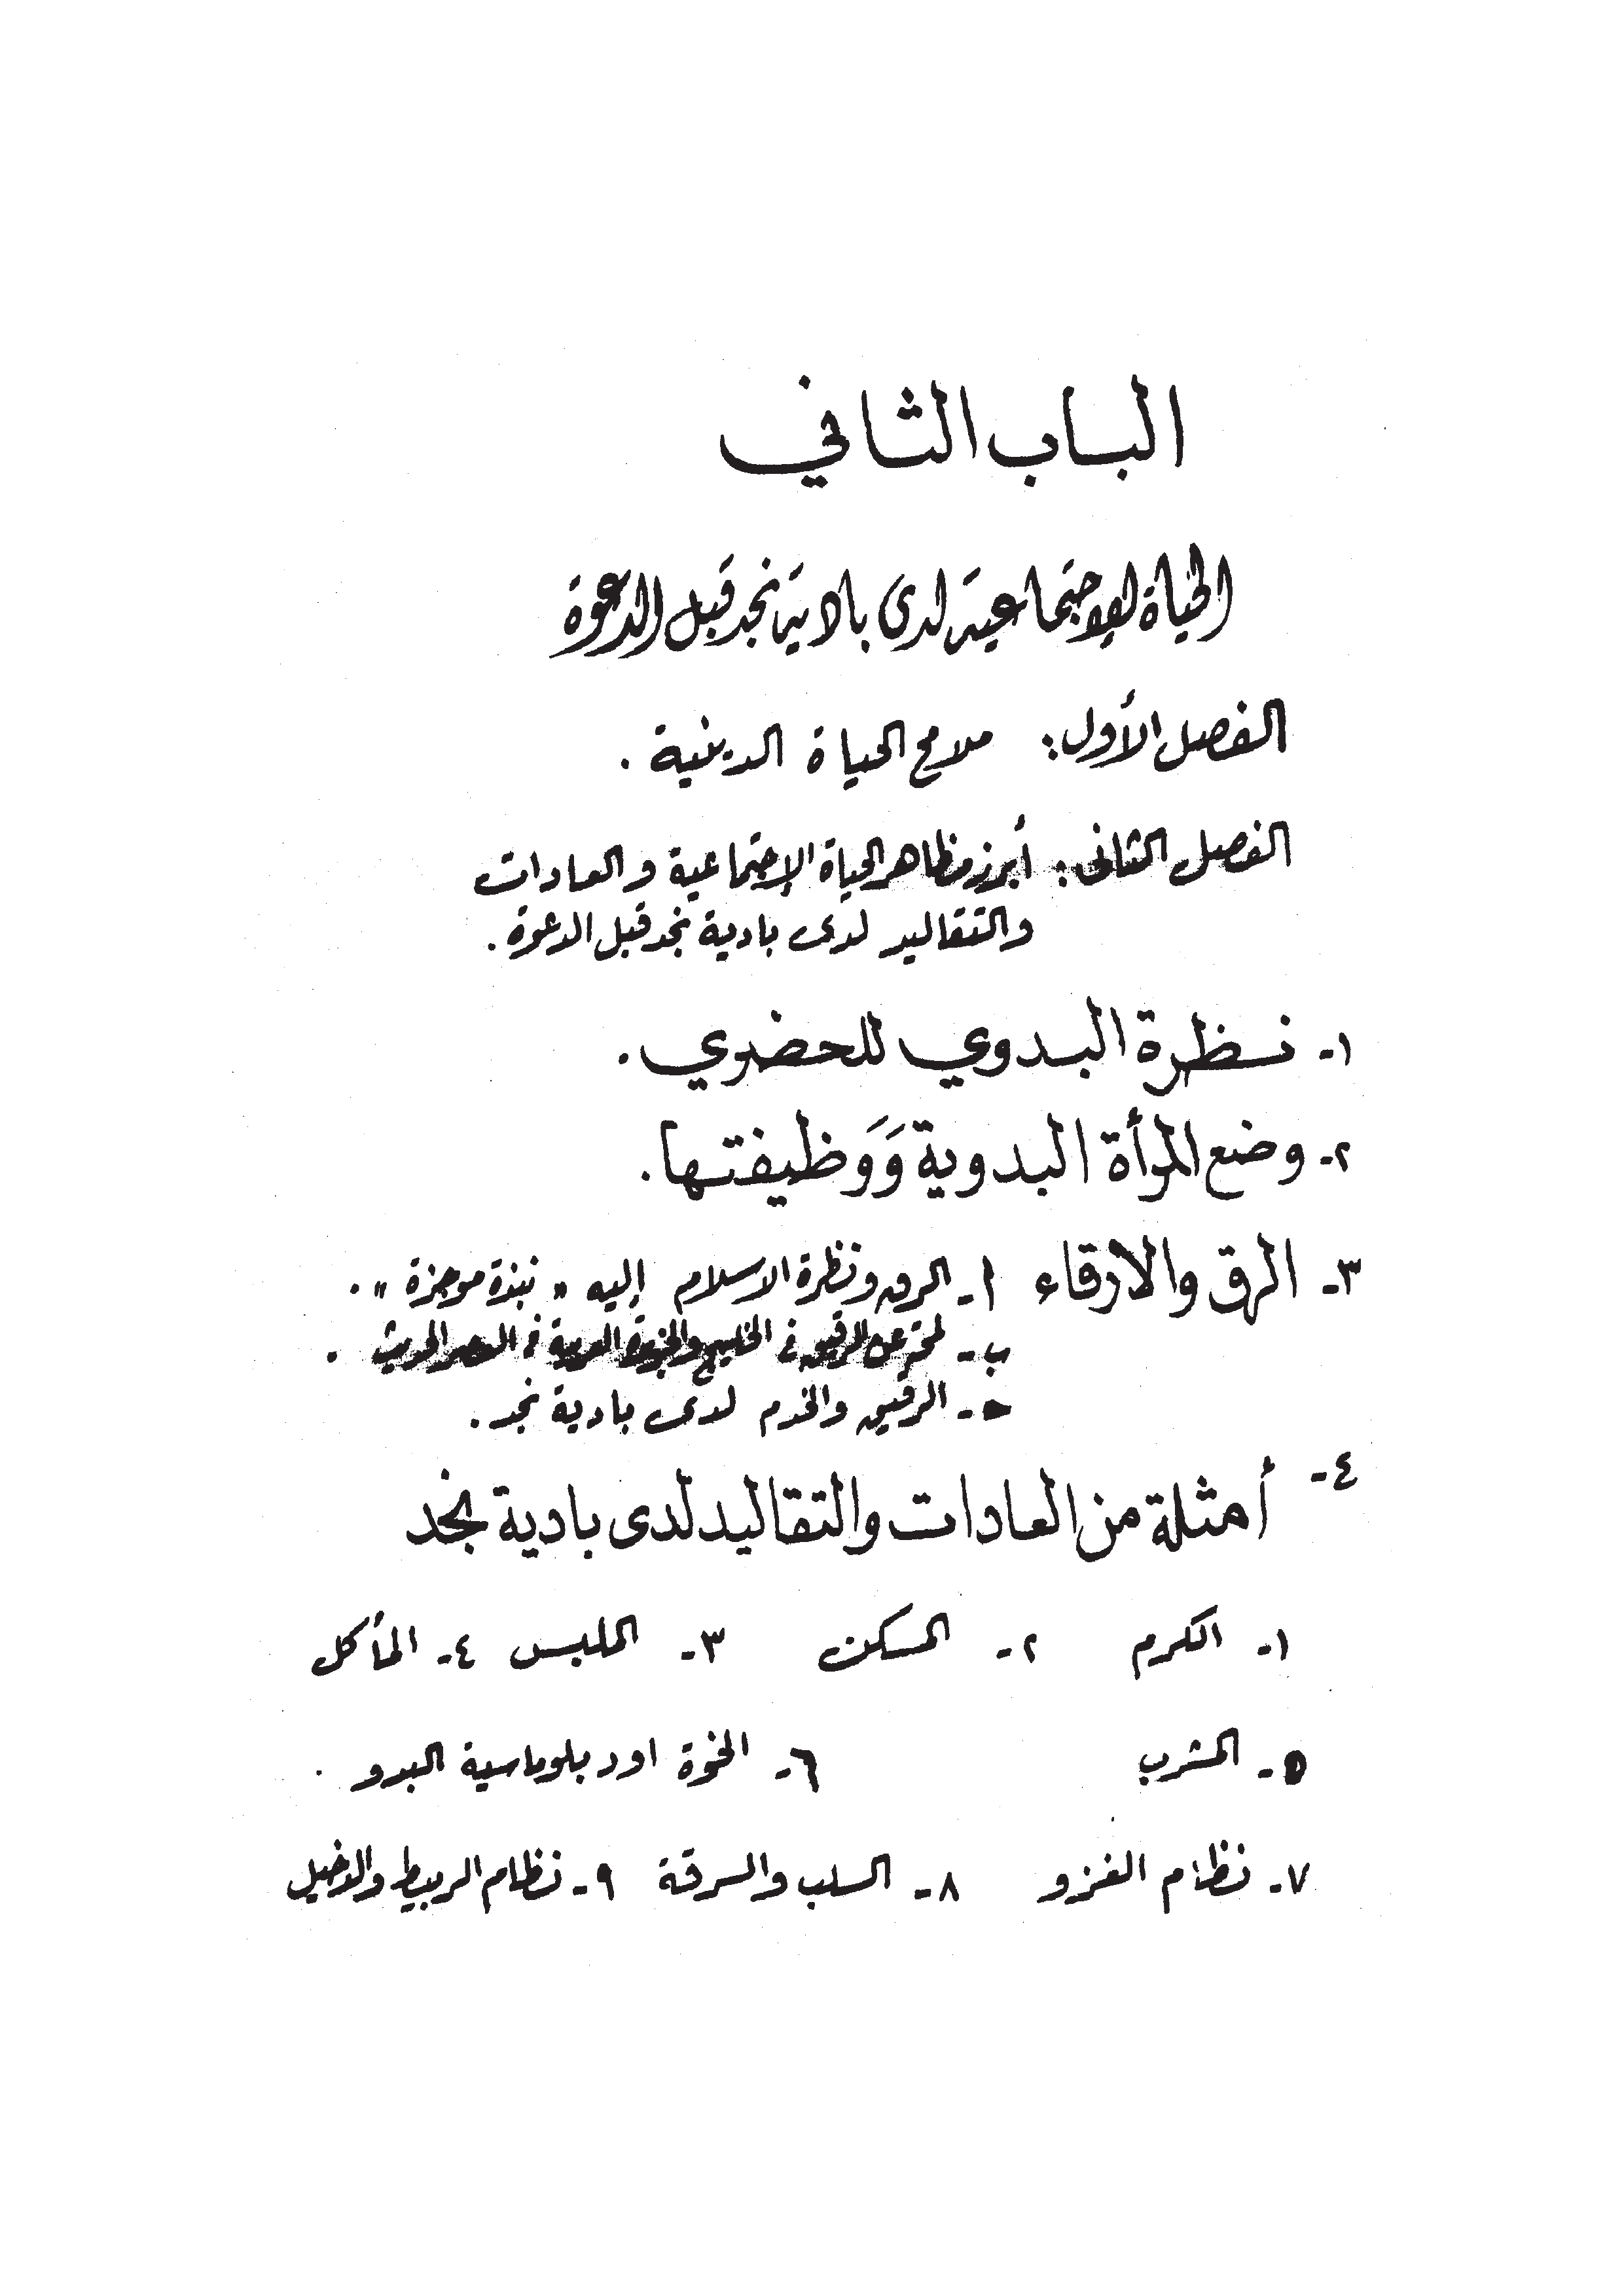 الباب الثاني
الحياة الاجتماعية لدى بادية نجد قبل الدعوة
الفصل الأول: ملامح الحياة الدينية .
الفصل الثانى: أبرز مظاهر الحياة الإجتماعية والعادات
والتقاليد لدى بادية نجد قبل الدعوة .
١- نظرة البدوي للحضري .
٢- وضع المرأة البدوية وَوَظيفتها .
٣- الرق والارقاء أ- الرق ونظرة الاسلام إليه " نبذة موجزة " .
ب- لمحة عن الرقيق فى الخليج والجزيرة العربية فى العصر الحديث .
حـ- الرقيق والخدم لدى بادية نجد .
٤- أمثلة من العادات والتقاليد لدى بادية نجد
١- الكرم ٢- المسكن ٣- الملبس ٤- المأكل
٥- المشرب ٦- الخوة او دبلوماسية البدو .
٧- نظام الغزو ٨- السلب والسرقة ٩- نظام الربيط والدخيل